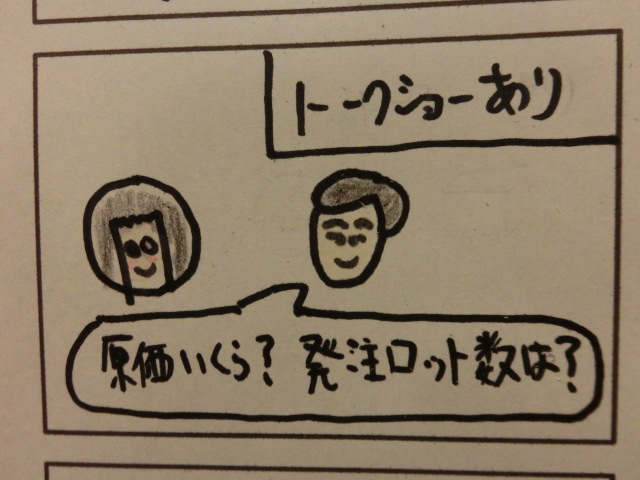 トークショーあり
原価いくら? 発注ロット数は?